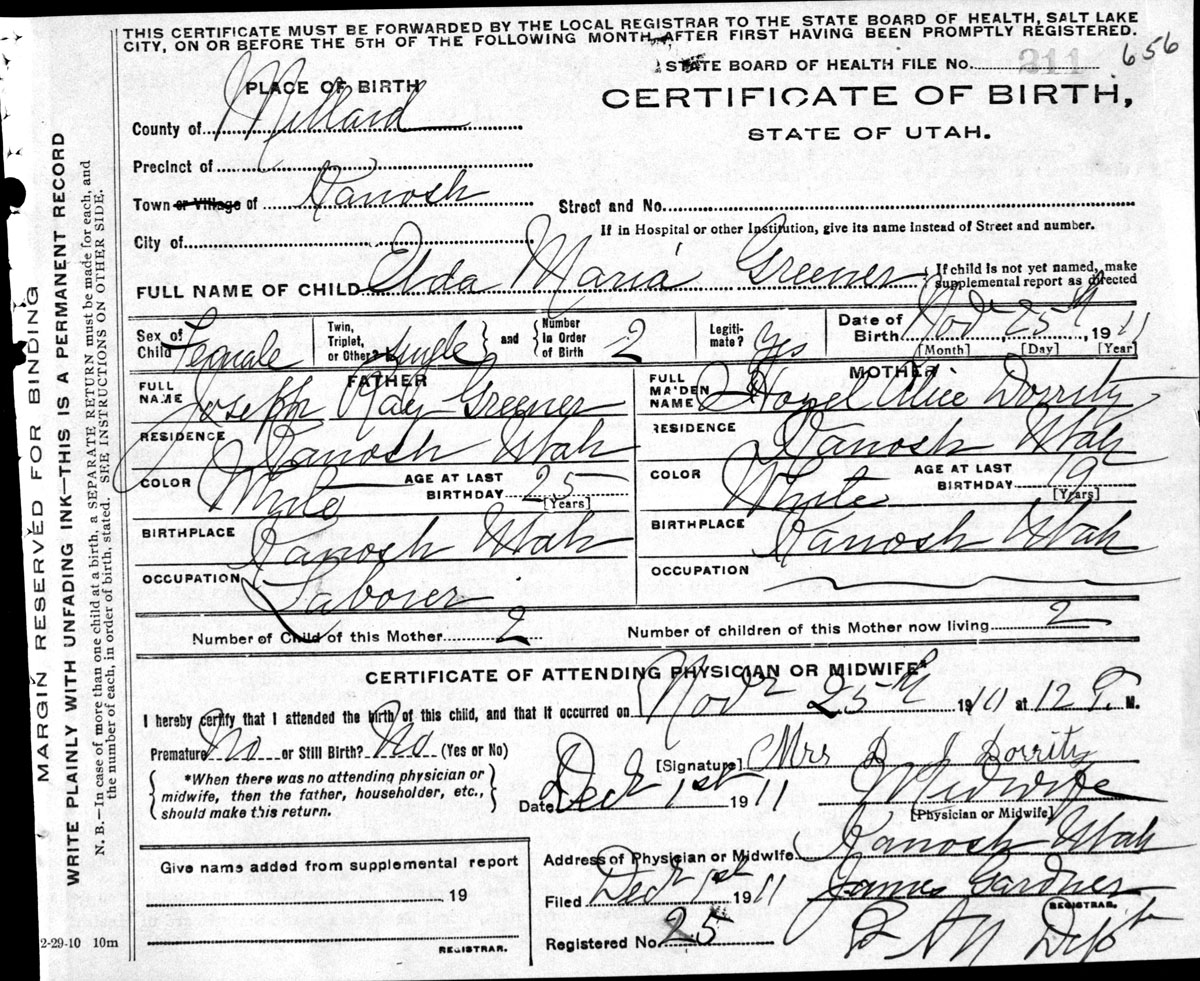 THIS CERTIFICATE MUST BE FORWARDED BY THE LOCAL REGISTRAR TO THE STATE BOARD OF HEALTH, SALT LAKE
CITY, ON OR BEFORE THE 5TH OF THE FOLLOWING MONTH, AFTER FIRST HAVING BEEN PROMPTLY REGISTERED.
STATE BOARD OF HEALTH FILE No. 311 656
PLACE OF BIRTH
CERTIFICATE OF BIRTH,
STATE OF UTAH.
County of Millard
Precinct of
Town or Village of Kanosh
Street and No.
City of
If in Hospital or other Institution, give its name instead of Street and number.
FULL NAME OF CHILD Elda Maria Greener
If child is not yet named, make supplemental report as directed
Sex of Child Female
Twin, Triplet, or Other? Single and Number in Order of Birth 2
Legitimate? Yes
Date of Birth Nov 25th, 1911
[Month] [Day] [Year]
FATHER
FULL NAME Joseph Ray Greener
RESIDENCE Kanosh Utah
COLOR White AGE AT LAST BIRTHDAY 25 [Years]
BIRTHPLACE Kanosh Utah
OCCUPATION Laborer
MOTHER
FULL MAIDEN NAME Hazel Alice Dorrity
RESIDENCE Kanosh Utah
COLOR White AGE AT LAST BIRTHDAY 19 [Years]
BIRTHPLACE Kanosh Utah
OCCUPATION
Number of Child of this Mother 2 Number of children of this Mother now living 2
CERTIFICATE OF ATTENDING PHYSICIAN OR MIDWIFE*
I hereby certify that I attended the birth of this child, and that it occurred on Novr 25th 1911 at 12 P. M.
Premature No or Still Birth? No (Yes or No)
*When there was no attending physician or
midwife, then the father, householder, etc.,
should make this return.
[Signature] Mrs D J Dorrity
Date Decr 1st 1911 Midwife
[Physician or Midwife]
Address of Physician or Midwife Kanosh Utah
Give name added from supplemental report
19
REGISTRAR.
Filed Decr 1st 1911 James Gardner
REGISTRAR.
Registered No. 25
MARGIN RESERVED FOR BINDING
WRITE PLAINLY WITH UNFADING INK—THIS IS A PERMANENT RECORD
N. B.—In case of more than one child at a birth, a SEPARATE RETURN must be made for each, and
the number of each, in order of birth, stated. SEE INSTRUCTIONS ON OTHER SIDE.
2-29-10 10m